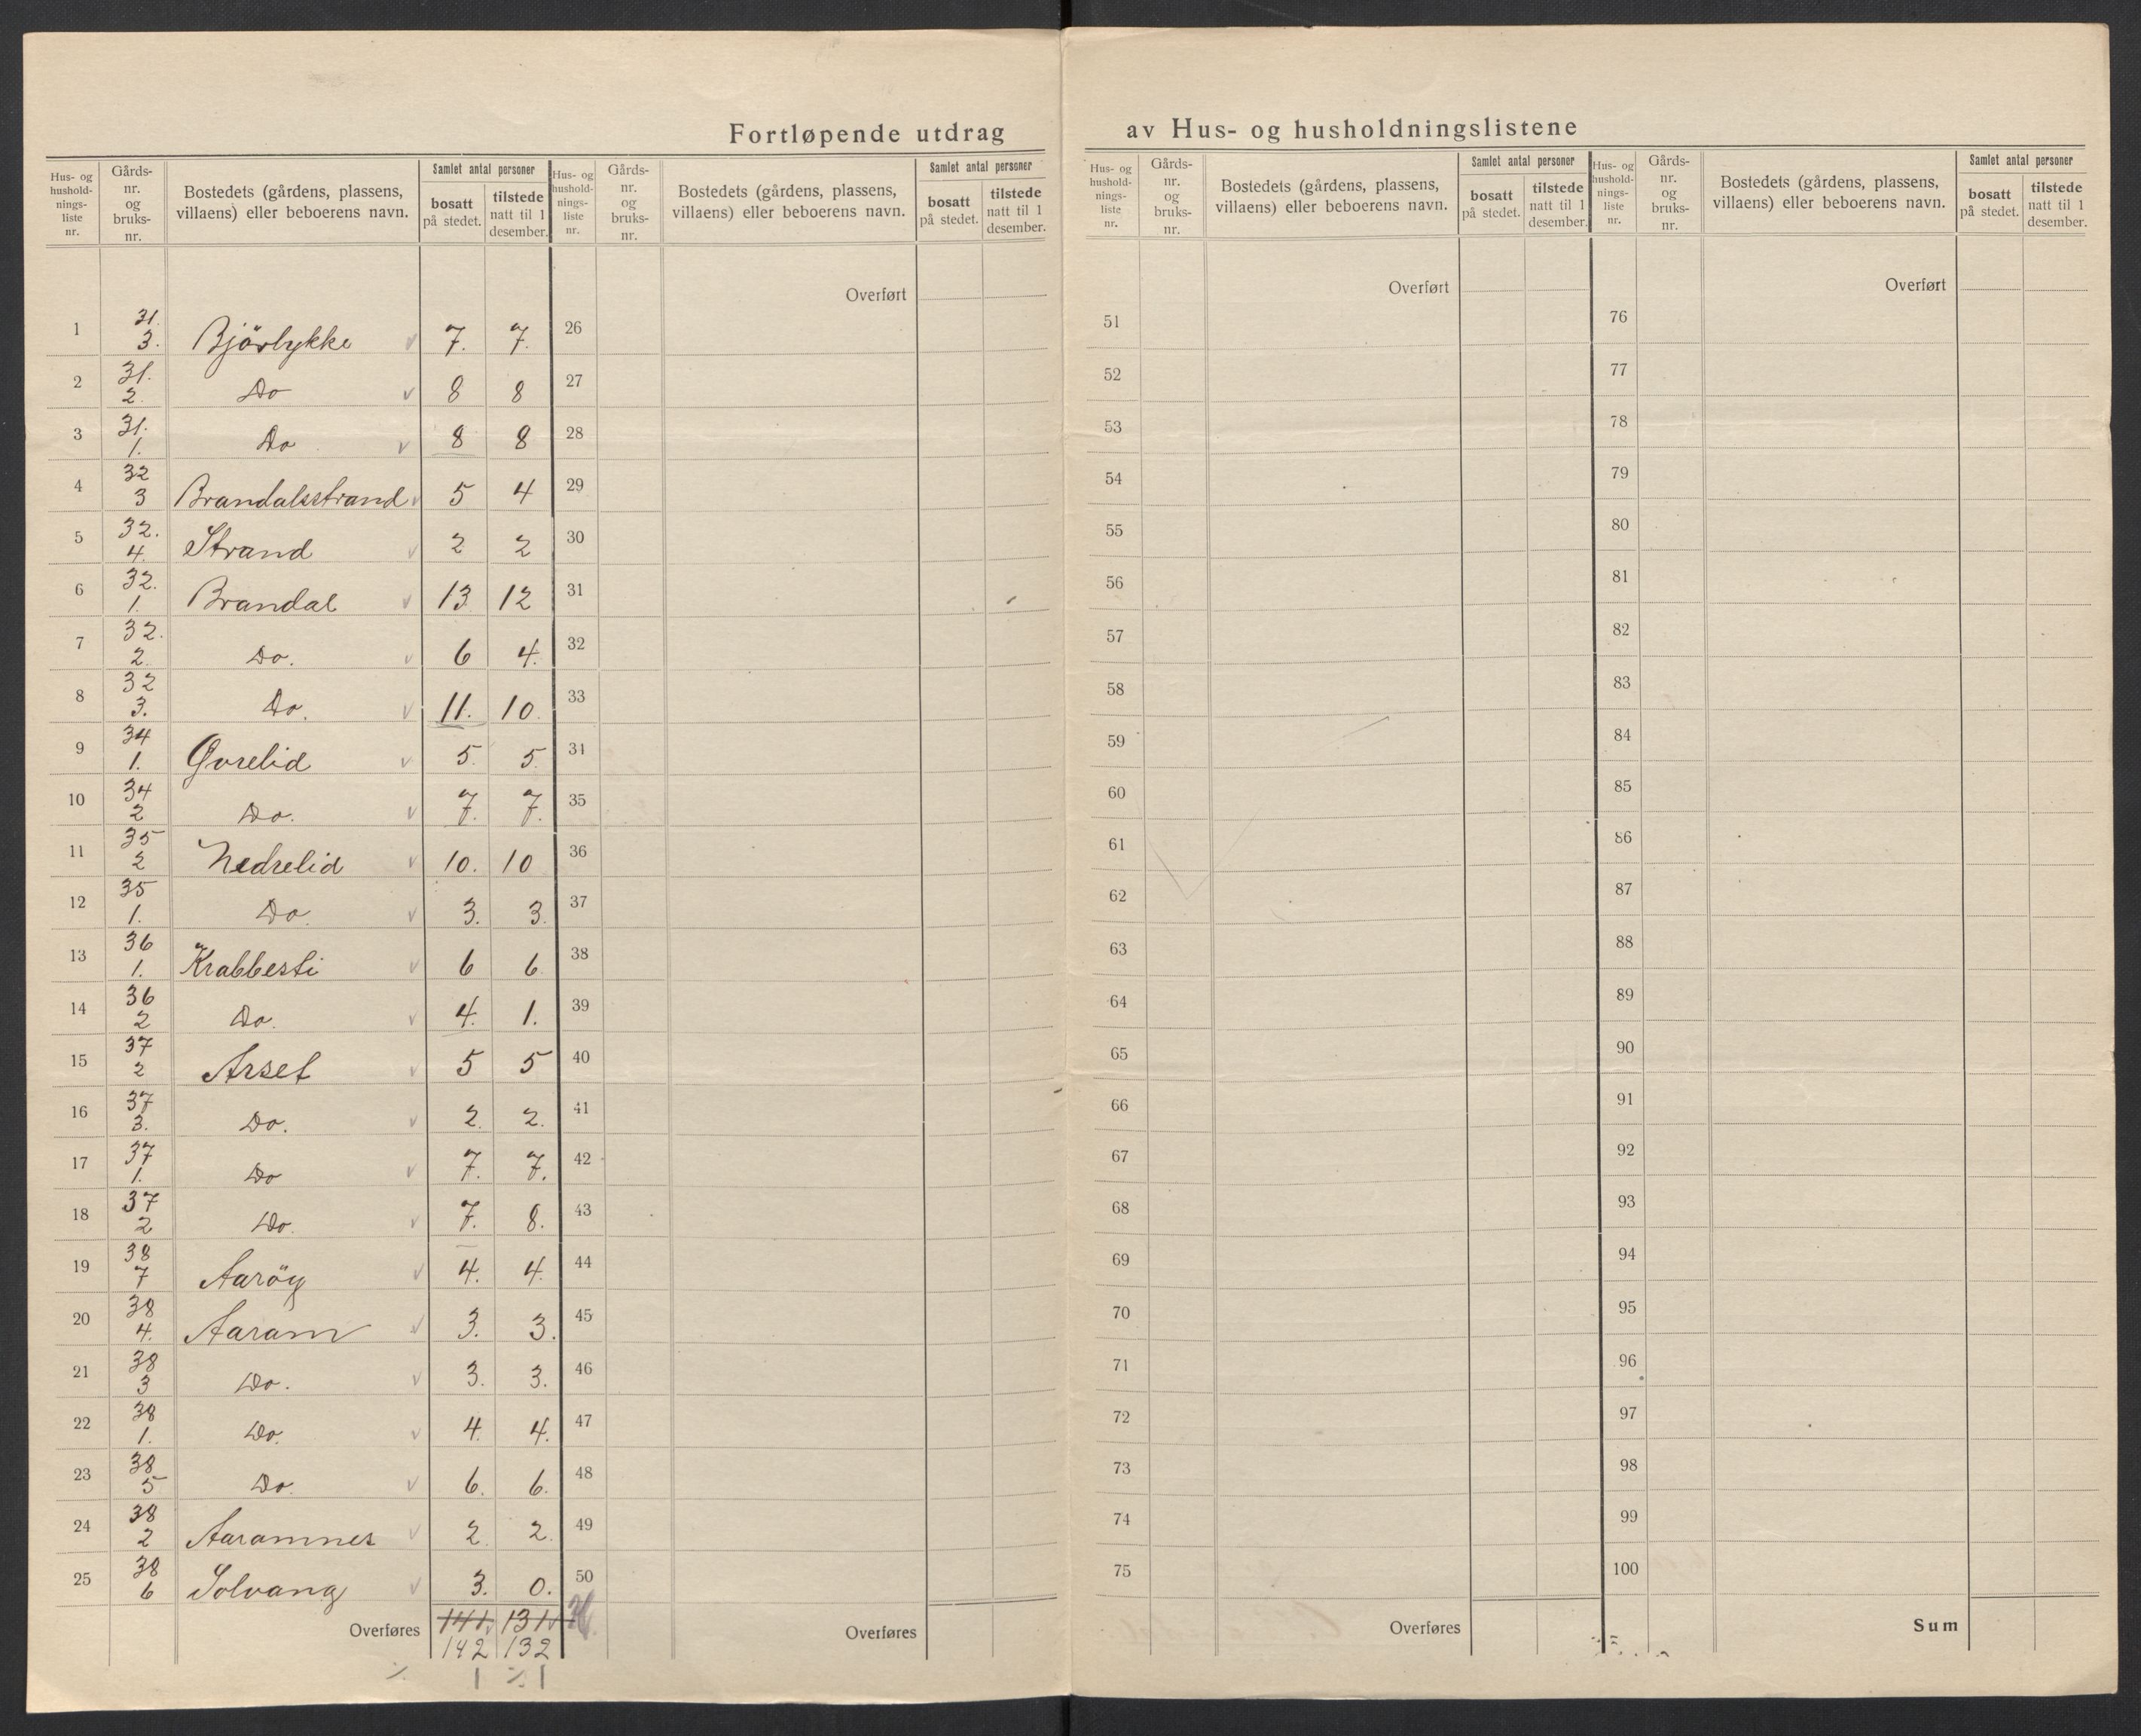 Fortløpende utdrag av Hus- og husholdningslistene
Hus- og hushold-nings-liste nr. | Gårds-nr. og bruks-nr. | Bostedets (gårdens, plassens, villaens) eller beboerens navn. | Samlet antal personer | bosatt på stedet. | tilstede natt til 1 desember.
Hus- og hushold-nings-liste nr. | Gårds-nr. og bruks-nr. | Bostedets (gårdens, plassens, villaens) eller beboerens navn. | Samlet antal personer | bosatt på stedet. | tilstede natt til 1 desember.
Hus- og hushold-nings-liste nr. | Gårds-nr. og bruks-nr. | Bostedets (gårdens, plassens, villaens) eller beboerens navn. | Samlet antal personer | bosatt på stedet. | tilstede natt til 1 desember.
Hus- og hushold-nings-liste nr. | Gårds-nr. og bruks-nr. | Bostedets (gårdens, plassens, villaens) eller beboerens navn. | Samlet antal personer | bosatt på stedet. | tilstede natt til 1 desember.
Overført Overført Overført
1 31. 3. Bjørlykke 7. 7. 26 51 76
2 31. 2. Do 8 8 27 52 77
3 31. 1. Do 8 8 28 53 78
4 32 3 Brandalsstrand 5 4 29 54 79
5 32. 4. Strand 2 2 30 55 80
6 32. 1. Brandal 13 12 31 56 81
7 32. 2. Do. 6 4. 32 57 82
8 32 3. Do. 11. 10. 33 58 83
9 34 1. Øvrelid 5. 5. 31 59 84
10 34 2 Do. 7. 7. 35 60 85
11 35 2 Nedrelid 10. 10 36 61 86
12 35 1. Do. 3. 3. 37 62 87
13 36 1. Krabbesti 6 6 38 63 88
14 36 2 Do. 4. 1. 39 64 89
15 37 2 Arset 5 5 40 65 90
16 37 3. Do. 2. 2. 41 66 91
17 37 1. Do 7. 7. 42 67 92
18 37 2 Do. 7. 8. 43 68 93
19 38 7 Aaröy 4. 4. 44 69 94
20 38 4. Aaram 3. 3. 45 70 95
21 38 3 Do. 3. 3. 46 71 96
22 38 1. Do. 4. 4. 47 72 97
23 38 5 Do. 6. 6. 48 73 98
24 38 2 Aaramnes 2. 2. 49 74 99
25 38 6 Solvang 3. 0. 50 75 100
Overføres 141. 131 Overføres Overføres Sum
142 132